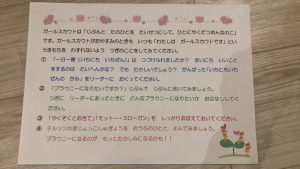 ガールスカウトは「じぶんと たのひとを たいせつにして、ひとにやくだつおんなのこ」
です。ガールスカウトがおやすみのときも いつも「わたしは ガールスカウトです」とい
うきもちを わすれないよう つぎのことをしてみてください。
① 「一日一善(いちにち いちぜん)」は つづけられましたか? まいにち いいこと
をするのは たいへんかな? でも たのしいでしょう? がんばった「いちにちいち
ぜんの かみ」をリーダーに おくってください。
② 「ブラウニーになりたいですか?」じぶんで じぶんにきいてみましょう。
つぎに リーダーにあったときに どんなブラウニーになりたいか おはなししてく
ださい。
③ 「やくそくとおきて」「モットー・スローガン」を しっかりおぼえておいてください。
④ テルリンのまじょっこしゅぎょうを おうちのひとと よんでみましょう。
ブラウニーになるのが もっとたのしみになるかも!!